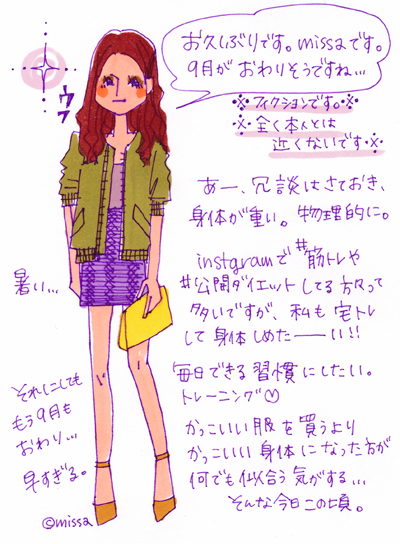 お久しぶりです。missaです。
9月がおわりそうですね…
フィクションです。
全く本人とは
近くないです
ウフ
あー、冗談はさておき、
身体が重い。物理的に。
instgramで#筋トレや
#公開ダイエットしてる方々って
多いですが、私も宅トレ
して身体しめたーーい!!
毎日できる習慣にしたい。
トレーニング♡
かっこいい服を買うより
かっこいい身体になった方が
何でも似合う気がする…
そんな今日この頃。
暑い…
それにしても
もう9月も
おわり…
早すぎる。
©missa